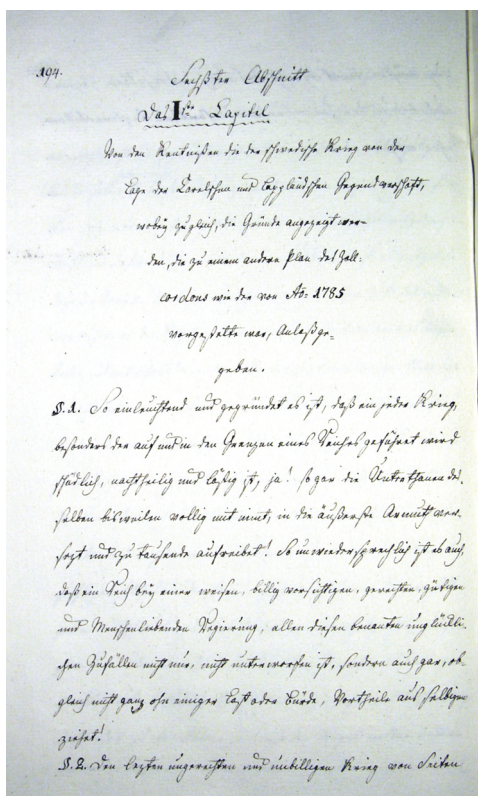 194.
Sechster Abschnitt
Das Iste Capitel
Von den Kentnißen die der schwedische Krieg von der
Lage der Carelschen und Lappländschen Gegend verschaft,
wobey zugleich, die Gründe angezeigt wer-
den, die zu einem andern Plan des Zoll-
cordons wie der von Ao: 1785
vorgestellte war, Anlaß ge-
geben.
§. 1. So einleuchtend und gegründet es ist, daß ein jeder Krieg,
besonders der auf und in den Grenzen eines Reiches geführet wird
schädlich, nachtheilig und lästig ist, ja! so gar die Unterthanen des-
selben bisweilen vollig mit nimt, in die äußerste Armuth ver-
sezt und zu tausende aufreibet! So unwiedersprechlich ist es auch,
daß ein Reich bey einer weisen, billig vorsichtigen, gerechten, gütigen
und Menschenliebenden Regierung, allen diesen benanten unglückli-
chen Zufällen nicht nur, nicht unterworfen ist, sondern auch gar, ob-
gleich nicht ganz ohn einiger Last oder Bürde, Vortheile aus selbigen
ziehet!
§. 2. Den lezten ungerechten und unbilligen Krieg von Seiten